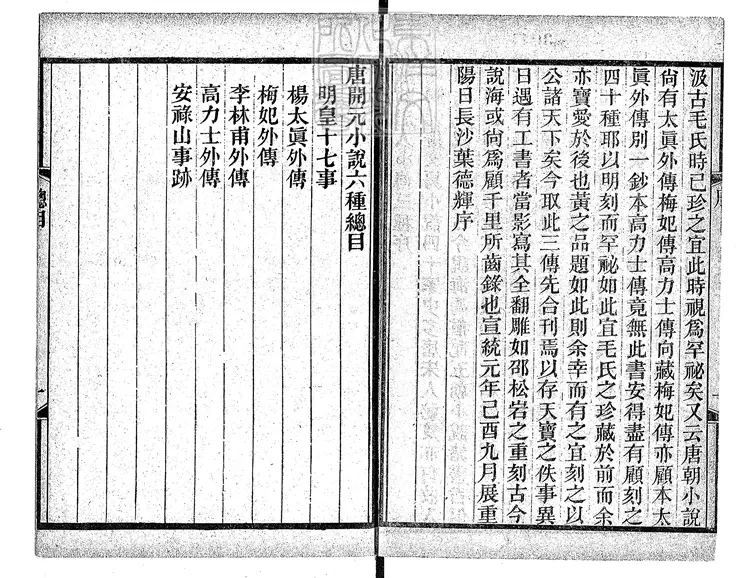 汲古毛氏時已珍之宜此時視爲罕祕矣又云唐朝小說
尙有太眞外傳梅妃傳高力士傳向藏梅妃傳亦顧本太
眞外傳別一鈔本高力士傳竟無此書安得盡有顧刻之
四十種耶以明刻而罕祕如此宜毛氏之珍藏於前而余
亦寶愛於後也黃之品題如此則余幸而有之宜刻之以
公諸天下矣今取此三傳先合刊焉以存天寶之佚事異
日遇有工書者當影寫其全翻雕如邵松岩之重刻古今
說海或尙爲顧千里所齒錄也宣統元年己酉九月展重
陽日長沙葉德輝序
唐開元小說六種總目
明皇十七事
楊太眞外傳
梅妃外傳
李林甫外傳
高力士外傳
安祿山事跡
總目